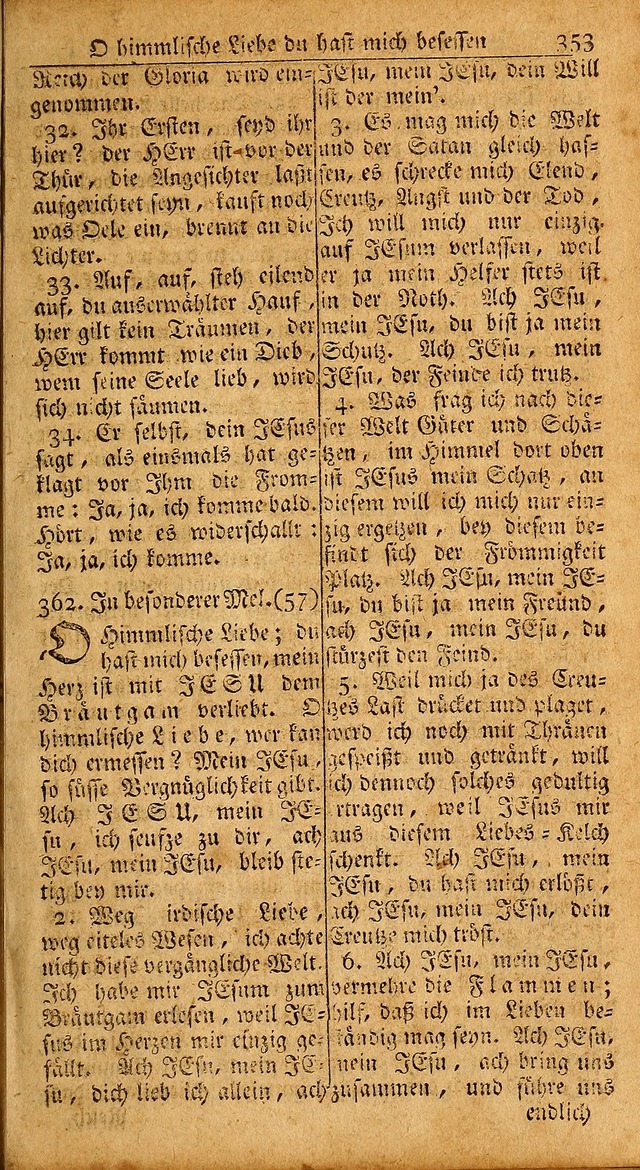 O himmlische Liebe du hast mich besessen 353
Reich der Gloria wird ein=
genommen.
32. Ihr Ersten, seyd ihr
hier? der HErr ist vor der
Thür, die Angesichter laßt
aufgerichtet seyn, kauft noch
was Oele ein, brennt an die
Lichter.
33. Auf, auf, steh eilend
auf, du auserwählter Hauf,
hier gilt kein Träumen, der
HErr kommt wie ein Dieb,
wem seine Seele lieb, wird
sich nicht säumen.
34. Er selbst, dein JEsus
sagt, als einsmals hat ge=
klagt vor Ihm die From=
me: Ja, ja, ich komme bald.
Hört, wie es widerschallt:
Ja, ja, ich komme.
362. In besonderer Mel. (57)
O Himmlische Liebe; du
hast mich besessen, mein
Herz ist mit JESU dem
Bräutgam verliebt. O
himmlische Liebe, wer kan
dich ermessen? Mein JEsu,
so süsse Vergnüglichkeit gibt.
Ach JESU, mein JE=
su, ich seufze zu dir, ach
JEsu, mein JEsu, bleib ste=
tig bey mir.
2. Weg irdische Liebe,
weg eiteles Wesen, ich achte
nicht diese vergängliche Welt.
Ich habe mir JEsum zum
Bräutgam erlesen, weil JE=
sus im Herzen mir einzig ge=
fällt. Ach JEsu, mein JE=
su, dich lieb ich allein, ach
JEsu, mein JEsu, dein Will
ist der mein'.
3. Es mag mich die Welt
und der Satan gleich has=
sen, es schrecke mich Elend,
Creutz, Angst und der Tod,
Ich will mich nur einzig
auf JEsum verlassen, weil
er ja mein Helfer stets ist
in der Noth. Ach JEsu,
mein JEsu, du bist ja mein
Schutz. Ach JEsu, mein
JEsu, der Feinde ich trutz.
4. Was frag ich nach die=
ser Welt Güter und Schä=
tzen, im Himmel dort oben
ist JEsus mein Schatz, an
diesem will ich mich nur ein=
zig ergetzen, bey diesem be=
findt sich der Frömmigkeit
Platz. Ach JEsu, mein JE=
su, du bist ja mein Freund,
ach JEsu, mein JEsu, du
stürzest den Feind.
5. Weil mich ja des Creu=
tzes Last drücket und plaget,
werd ich noch mit Thränen
gespeißt und getränkt, will
ich dennoch solches gedultig
ertragen, weil JEsus mir
aus diesem Liebes=Kelch
schenkt. Ach JEsu, mein
JEsu, du hast mich erlößt,
ach JEsu, mein JEsu, dein
Creutze mich tröst.
6. Ach JEsu, mein JEsu,
vermehre die Flammen;
hilf, daß ich im Lieben be=
ständig mag seyn. Ach JEsu,
mein JEsu, ach bring uns
zusammen, und führe uns
endlich